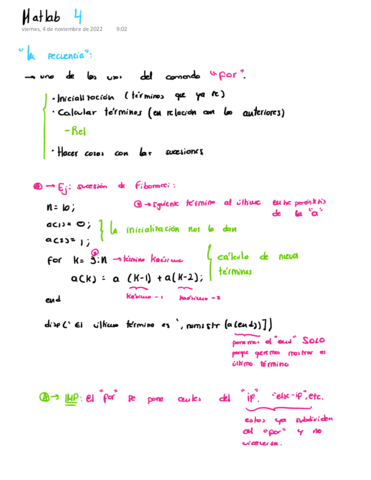 Matlab 4
viernes, 4 de noviembre de 2022 9:02
"la recuencia":
→ uno de los usos del comando "for".
· Inicialización (términos que ya sé)
· Calcular términos (en relación con los anteriores)
- Rel
· Hacer cosas con las sucesiones
→ Ej: sucesión de Fibonacci:
n = 10;
→ siguiente término al último entre paréntesis de la "a"
a(1) = 0;
a(2) = 1;
la inicialización nos la dan
for k = 3:n → término
a(k) = a (k-1) + a(k-2);
cálculo de nuevos términos
end
disp(' El último término es ', numstr (a(end))])
ponemos el "end" SOLO
porque queremos mostrar el
último término
→ IMP: El "for" se pone antes del "if", "else-if", etc.
estos ya subdividen
al "for" y no
viceversa.